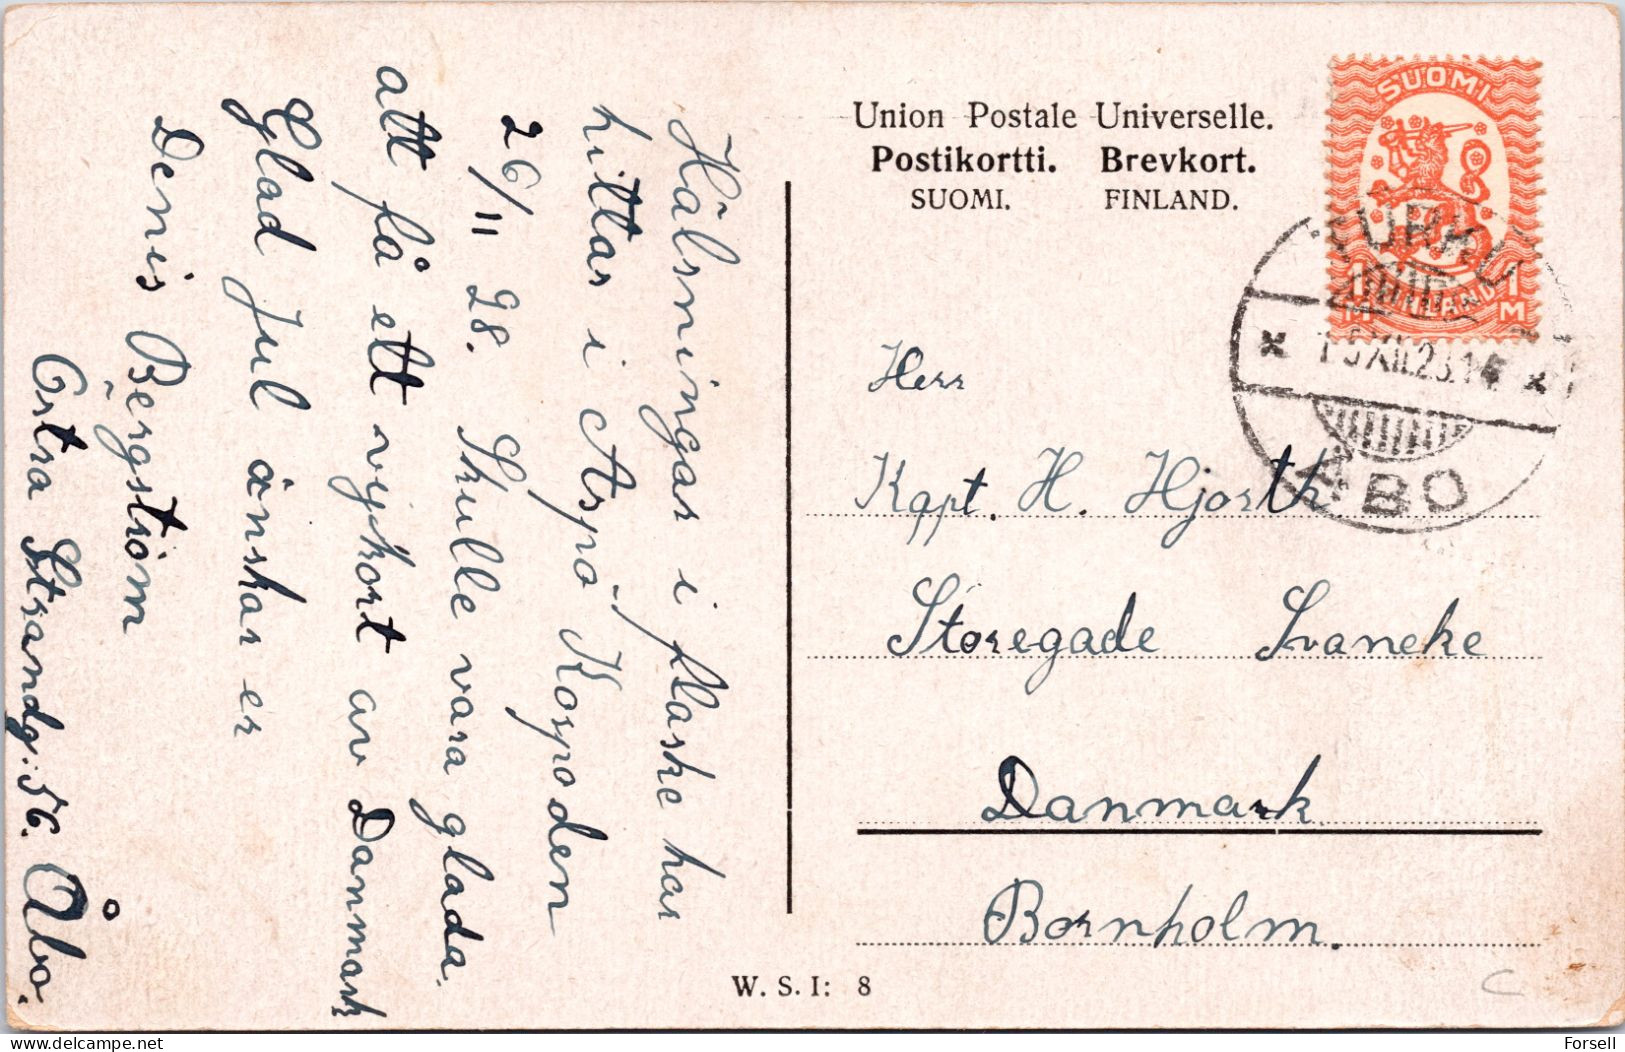 Hälsningar i flaske har
hittas i Aspö Kospoden
26/11 28. Skulle vara glada
att få ett vykort av Danmark
Glad Jul önskar er
Denis Bergström
Östra Strandg. 56. Åbo.
Union Postale Universelle.
Postikortti. Brevkort.
SUOMI. FINLAND.
SUOMI
1 FINLAND 1
M M
TURKU
ÅBO
Herr
Kapt. H. Hjorth
Storegade Svaneke
Danmark
Bornholm.
W. S. I: 8
C
Forsell